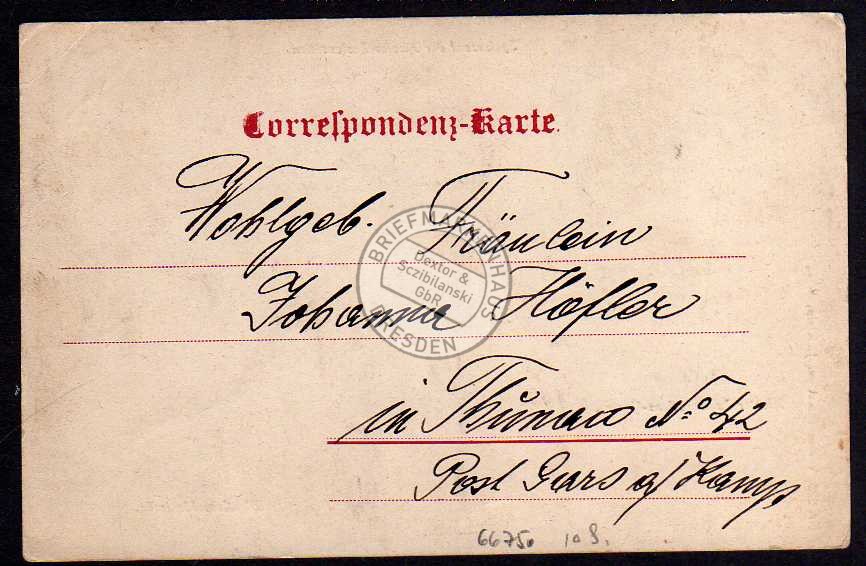 Correspondenz-Karte.
Wohlgeb. Fräulein
Johanna Höfler
in Thunau No. 42
Post Gars a/ Kamp
BRIEFMARKENHAUS
Dextor &
Sczibilanski
GbR
DRESDEN
66750 10 S.